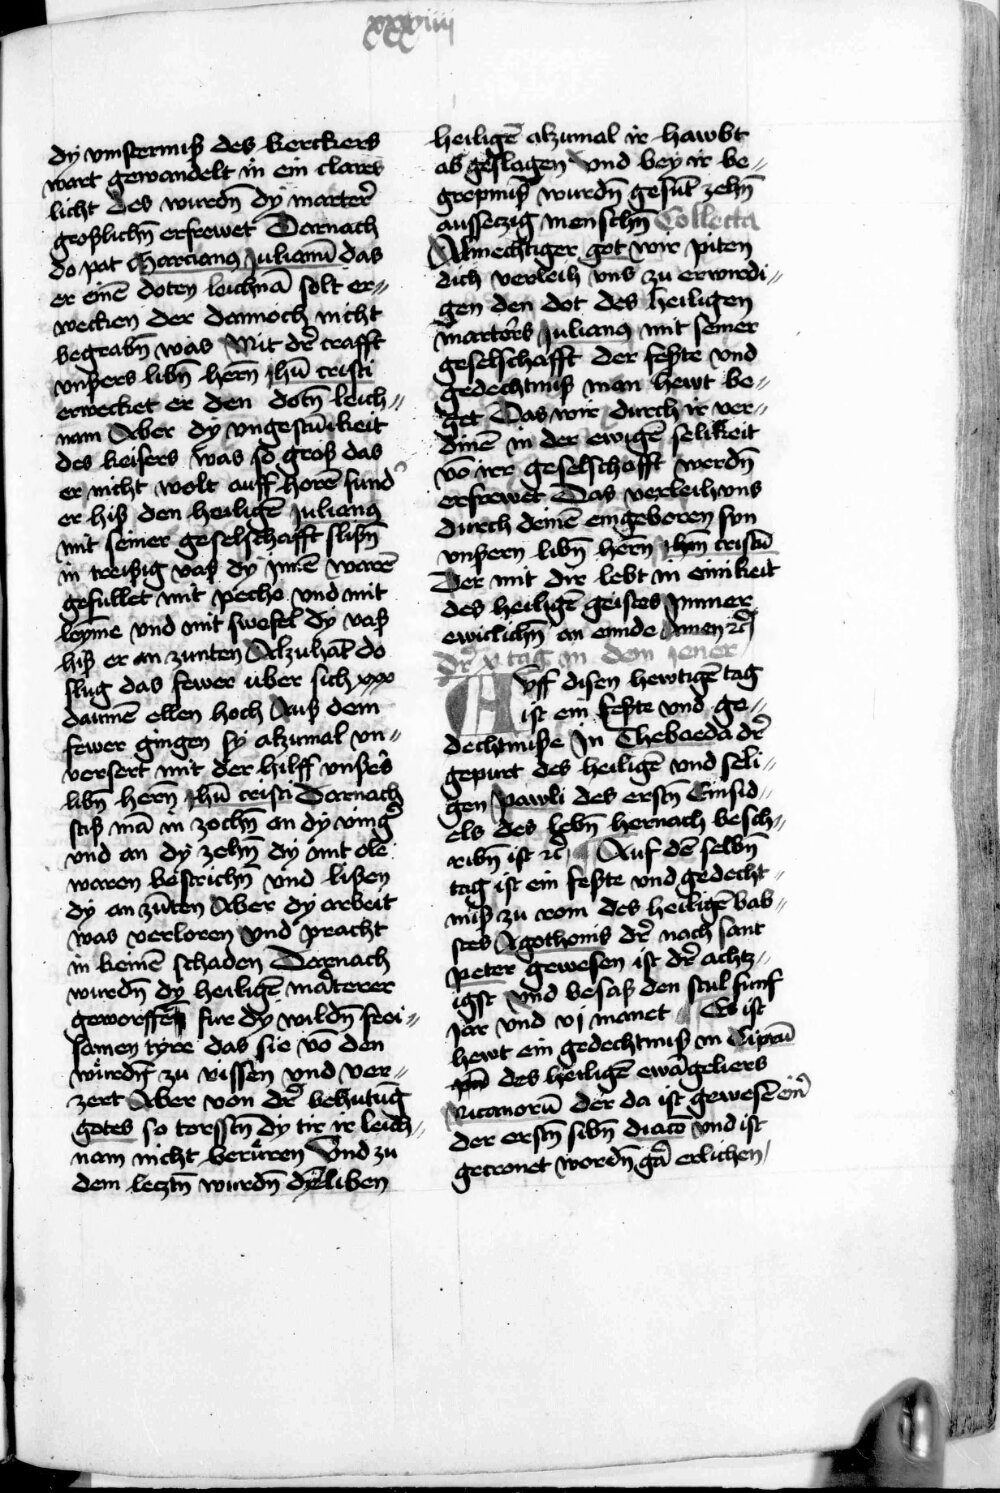 xxxviiij
dy vinsternuß des kerckers
wart gewandelt in ein clares
licht des wurdn̄ dy marter̄
großlichn̄ erfrewet Darnach
do pat Marcianꝯ Julianū das
er einē doten leichnā solt er⸗
wecken der dannoch nicht
begrabn̄ was Mit dr̄ crafft
vnßers libn̄ hern̄ Jhū cristi
erwecket er den dotn̄ leich⸗
nam Aber dy vngestūikeit
des keisers was so groß das
er nicht wolt auff horen̄ sund̾
er hiß den heiligē Julianꝯ
mit seiner geselschafft slißn̄
in treißig vaß dy Jnnē warē
gefullet mit peche vnd mit
leyme vnd mit swefel dy vaß
hiß er an zunten Alzuhāt do
slug das fewer vber sich xxx
daumē ellen hoch Auß dem
fewer gingen sy alzumal vn⸗
versert mit der hilff vnßes̄
libn̄ hern̄ Jhū cristi Darnach
stiß mā in zochn̄ an dy ving̾
vnd an dy zehn̄ dy mit ole
waren bestrichn̄ vnd lißen
dy an zūten Aber dy arbeit
was verloren vnd pracht
in keinē schaden Darnach
wurdn̄ dy heiligē mar̄terer
geworffē fur dy wildn̄ froi⸗
samen tyre das sie vō den
wurdn̄ zu rissen vnd ver⸗
zert Aber von dr̄ behutūg
gotes so torsstn̄ dy tir ir leich⸗
nam nicht beruren Vnd zu
dem lecztn̄ wurdn̄ dy liben
heiligē alzumal ir hawbt
ab geslagen Vnd bey ir be⸗
grepnuß wurdn̄ gesūt zehn̄
ausseczig menschn̄ Collecta
Almechtiger got wir piten
dich verleih vns zu erwirdi⸗
gen den dot des heiligen
martoꝛ̄s Julianꝯ mit seiner
geselschafft der feßte vnd
gedechtnuß man hewt be⸗
get Das wir durch ir ver⸗
dinē in der ewigē selikeit
vō irer geselschafft werdn̄
erfrewet Das verleih vns
durch deinē eingeboren sun
vnßern libn̄ hern̄ Jhm̄ cristū
Der mit dir lebt in einikeit
des heiligē geistes Jmmer
ewiclichn̄ an ennde Amen ꝛc̄
dr̄ x tag in dem jener
AVff disen hewtigē tag
ist ein feßte vnd ge⸗
dechtnuße Jn Thebaeda dr̄
gepurt des heiligē vnd seli⸗
gen Pawli des erstn̄ Einsid⸗
els des lebn̄ hernach besch⸗
ribn̄ ist ꝛc̄ Auf dē selbn̄
tag ist ein feßte vnd gedecht⸗
nuß zu rom des heiligē bab⸗
stes Agothonis dr̄ nach sant
Peter gewesen ist dr̄ achtz⸗
igst vnd besaß den stul funf
jar vnd vj manet Es ist
hewt ein gedechtnuß in Ciprū
des heiligē ewāgeliers
Nicanorū der da ist gewesē ein̾
der erstn̄ sibn̄ diacō vnd ist
gecronet wordn̄ gā erlichen